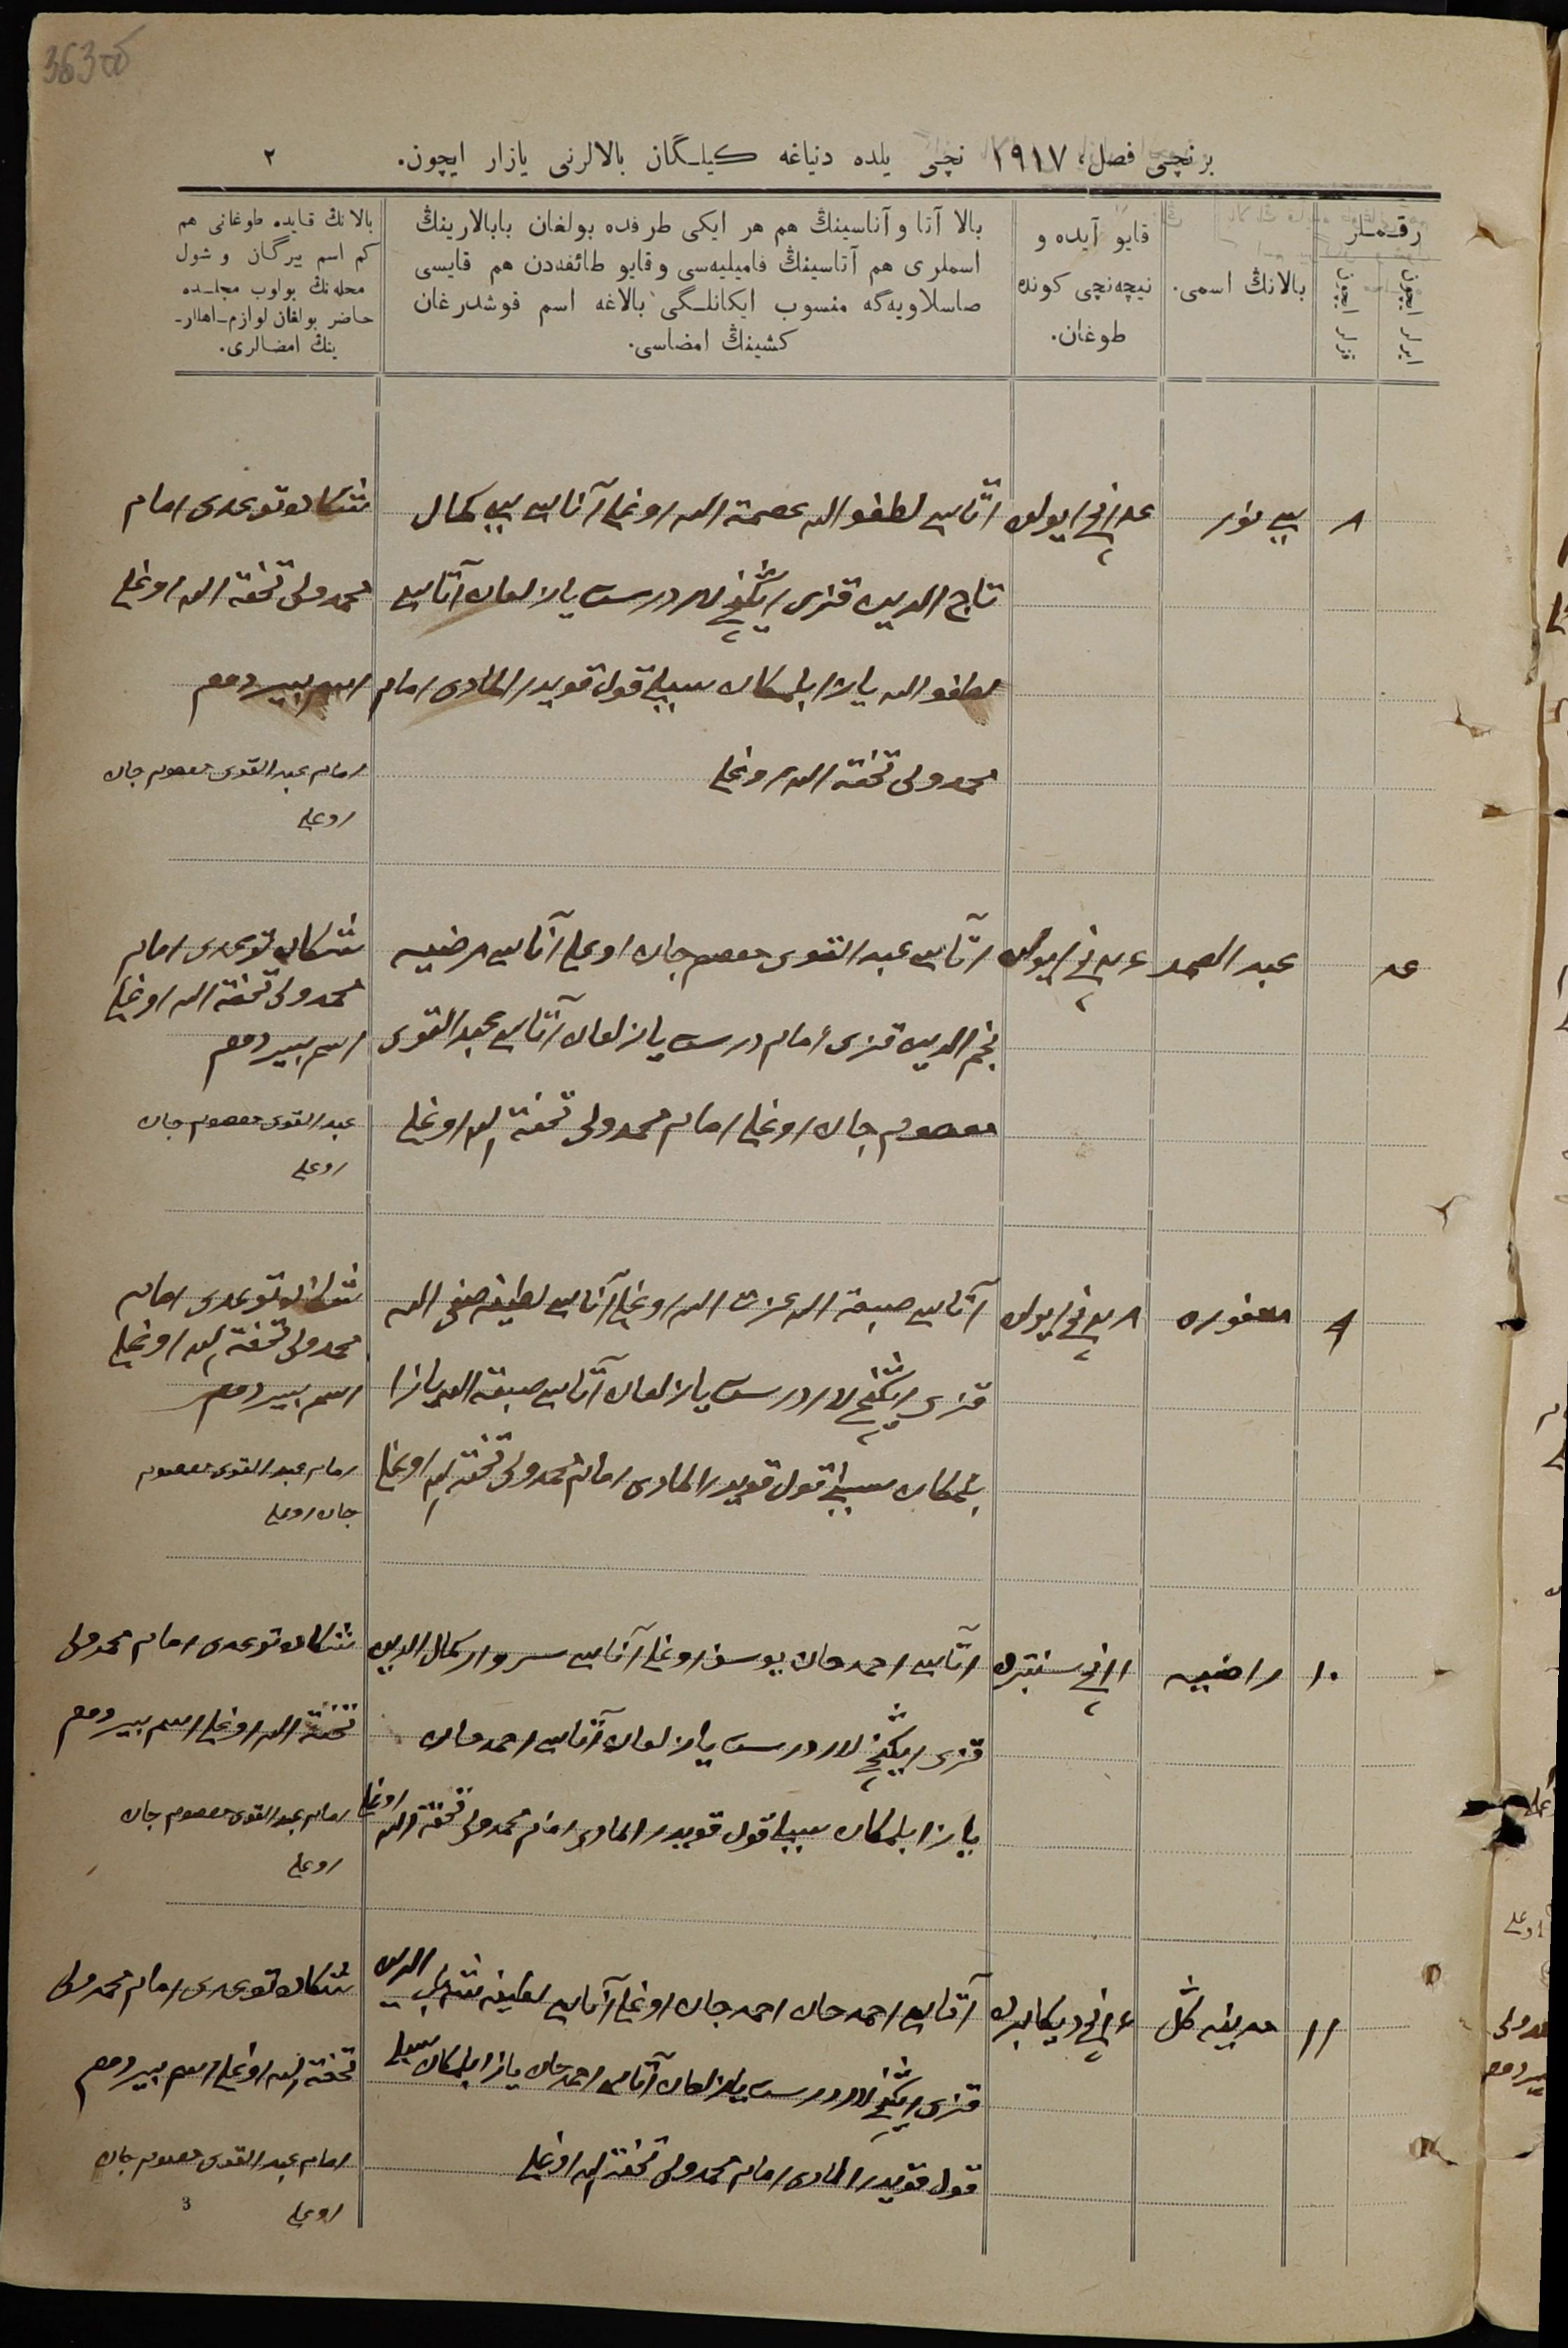 363об
برنچی فصل، ١٩١٧ نچی یلده دنیاغه کیلـگان بالالرنی یازار ایچون.
٢
رقـمـلر
ایرلر ایچون
قزلر ایچون
بالانڭ اسمی.
قایو آیده و
نیچه‌نچی کونده
طوغان.
بالا آتا و آناسینڭ هم هر ایکی طرفده بولغان بابالارینڭ
اسملری هم آتاسینڭ فامیلیه‌سی و قایو طائفه‌دن هم قایسی
صاسلاویه‌گه منسوب ایکانلـگی بالاغه اسم قوشدرغان
کشینڭ امضاسی.
بالانڭ قایده طوغانی هم
کم اسم بیرگان و شول
محله‌نڭ بولوب مجلـده
حاضر بولغان لوازم-اهلار-
ینڭ امضالری.
٨
بی بی نور
نچی ایولده
آتاسی لطف الله عصمة الله اوغلی آناسی بی بی کمال
تاج الدین قزی ایگنچیلار درست یازلغان آتاسی
لطف الله یازا بلمکان سببلی قول قویدر المادی امام
محمدولی تحفة الله اوغلی
توغدی امام
محمدولی تحفة الله اوغلی
اسم بیردم
امام عبد القوی معصوم جان
اوغلی
عبد الصمد
نچی ایولده
آتاسی عبد القوی معصوم جان اوغلی آناسی مرضیه
نجم الدین قزی امام درست یازلغان آتاسی عبد القوی
معصوم جان اوغلی امام محمدولی تحفة الله اوغلی
توغدی امام
محمدولی تحفة الله اوغلی
اسم بیردم
عبد القوی معصوم جان
اوغلی
٩
مغفوره
نچی ایولده
آتاسی صبغة الله عزت الله اوغلی آناسی لطیفه صفی الله
قزی ایگنچیلار درست یازلغان آتاسی صبغة الله یازا
بلمکان سببلی قول قویدر المادی امام محمدولی تحفة الله اوغلی
توغدی امام
محمدولی تحفة الله اوغلی
اسم بیردم
امام عبد القوی معصوم
جان اوغلی
١٠
راضیه
١١ نچی سنتبرده
آتاسی احمدجان یوسف اوغلی آناسی سرور کمال الدین
قزی ایگنچیلار درست یازلغان آتاسی احمدجان
یازا بلمکان سببلی قول قویدر المادی امام محمدولی تحفة الله اوغلی
توغدی امام محمدولی
تحفة الله اوغلی اسم بیردم
امام عبد القوی معصوم جان
اوغلی
١١
مدینه گل
نچی دیکابرده
آتاسی احمدجان احمدجان اوغلی آناسی لطیفه الدین
قزی ایگنچیلار درست یازلغان آتاسی احمدجان یازا بلمکان سببلی
قول قویدر المادی امام محمدولی تحفة الله اوغلی
توغدی امام محمدولی
تحفة الله اوغلی اسم بیردم
امام عبد القوی معصوم جان
اوغلی
3